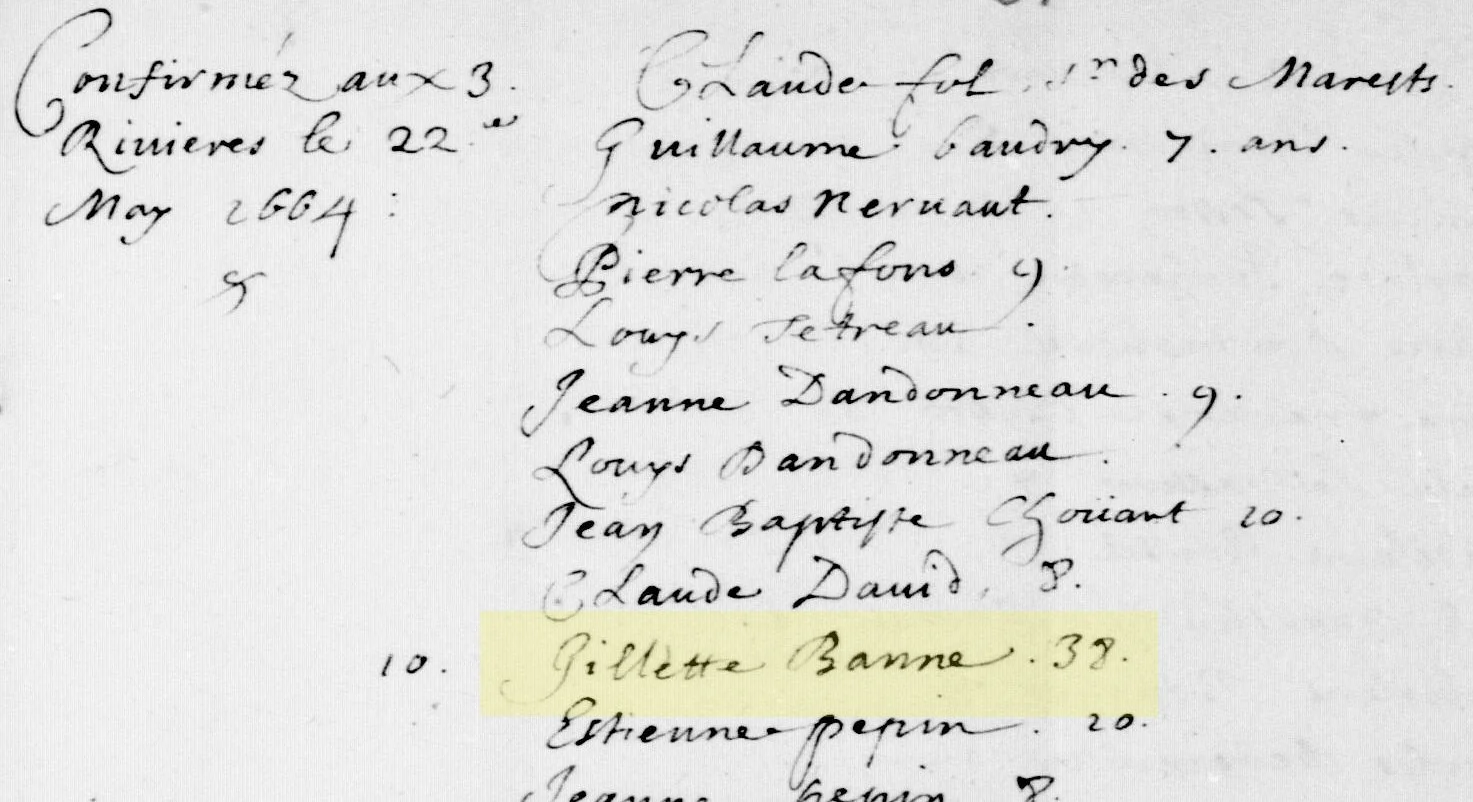 Confirméz aux 3.
Riuieres le 22
May 1664 :
Claude fol sr des Marests.
Guillaume baudry. 7. ans.
Nicolas Neruaut.
Pierre lafons. 9
Louys Tetreau .
Jeanne Dandonneau . 9.
Louys Dandonneau .
Jean Baptiste Choüart 10.
Claude Dauid. 8.
10. Gillette Banne . 38.
Estienne pepin . 10.
Jeanne pepin 8.